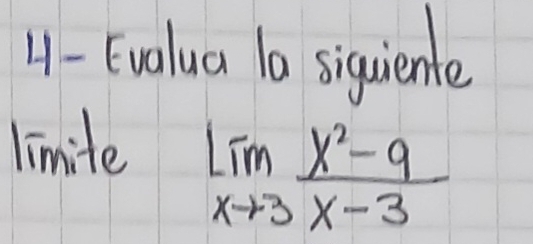 4- Evalua la siguiente
límite Lím x²-9
x→3 x-3